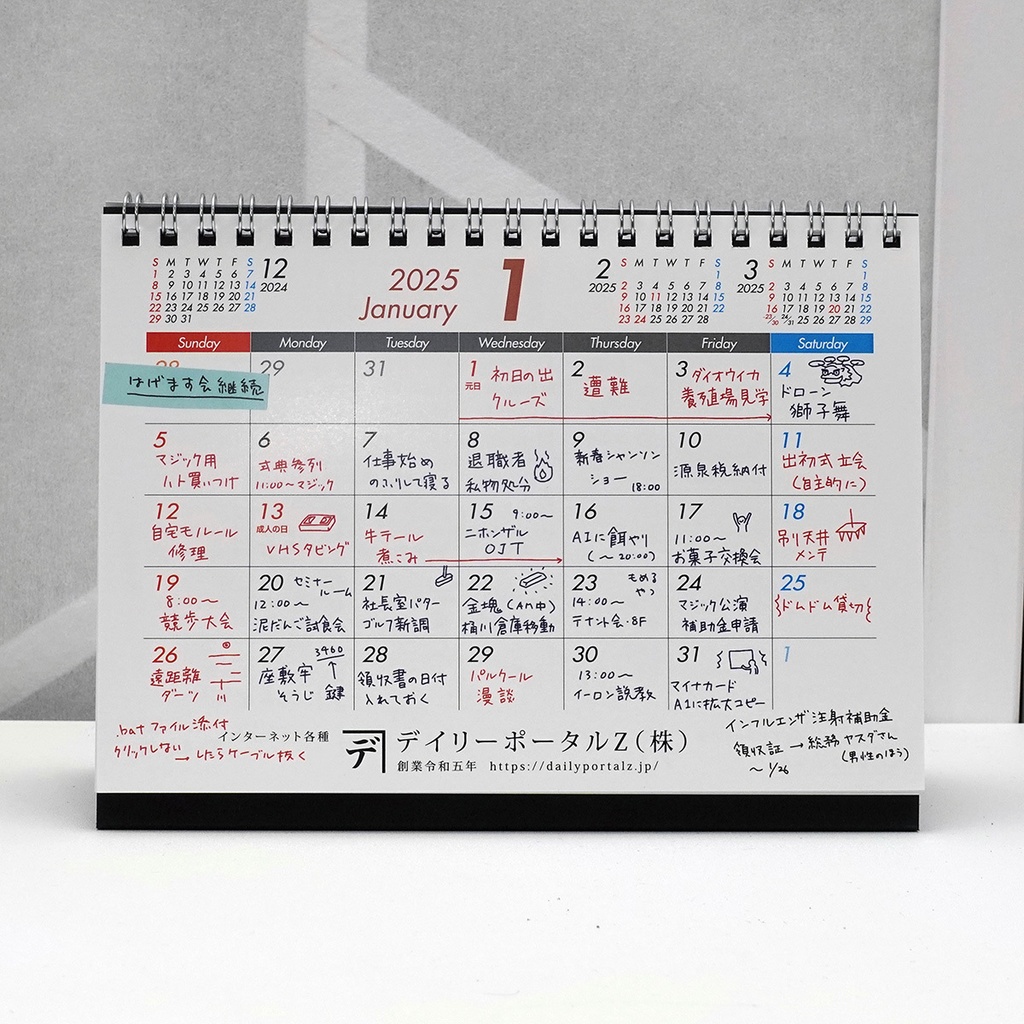 S M T W T F S
1 2 3 4 5 6 7
8 9 10 11 12 13 14
15 16 17 18 19 20 21
22 23 24 25 26 27 28
29 30 31
12
2024
2025
January
1
2
2025
S M T W T F S
1
2 3 4 5 6 7 8
9 10 11 12 13 14 15
16 17 18 19 20 21 22
23 24 25 26 27 28
3
2025
S M T W T F S
1
2 3 4 5 6 7 8
9 10 11 12 13 14 15
16 17 18 19 20 21 22
23/30 24/31 25 26 27 28 29
Sunday Monday Tuesday Wednesday Thursday Friday Saturday
はげます会継続
29
31
1
元日
初日の出
クルーズ
2
遭難
3
ダイオウイカ
養殖場見学
4
ドローン
獅子舞
5
マジック用
ハト買いつけ
6
式典参列
11:00〜マジック
7
仕事始め
のふりして寝る
8
退職者
私物処分
9
新春シャンソン
ショー
18:00
10
源泉税納付
11
出初式立会
(自主的に)
12
自宅モルール
修理
13
成人の日
VHSダビング
14
牛テール
煮こみ
15
9:00〜
ニホンザル
OJT
16
AIに餌やり
(〜20:00)
17
11:00〜
お菓子交換会
18
吊り天井
メンテ
19
8:00〜
競歩大会
20
セミナー
ルーム
12:00〜
泥だんご試食会
21
社長室パター
ゴルフ新調
22
金塊(AM中)
桶川倉庫移動
23
もめる
やつ
14:00〜
テナント会・8F
24
マジック公演
補助金申請
25
ドムドム貸切
26
遠距離
ダーツ
27
3460
座敷牢
そうじ 鍵
28
領収書の日付
入れておく
29
パルクール
漫談
30
13:00〜
イーロン説教
31
マイナカード
A1に拡大コピー
1
.batファイル添付
クリックしない
→したらケーブル抜く
インターネット各種
デ
デイリーポータルZ(株)
創業令和五年 https://dailyportalz.jp/
インフルエンザ注射補助金
領収証→総務ヤスダさん
(男性のほう)
〜1/26